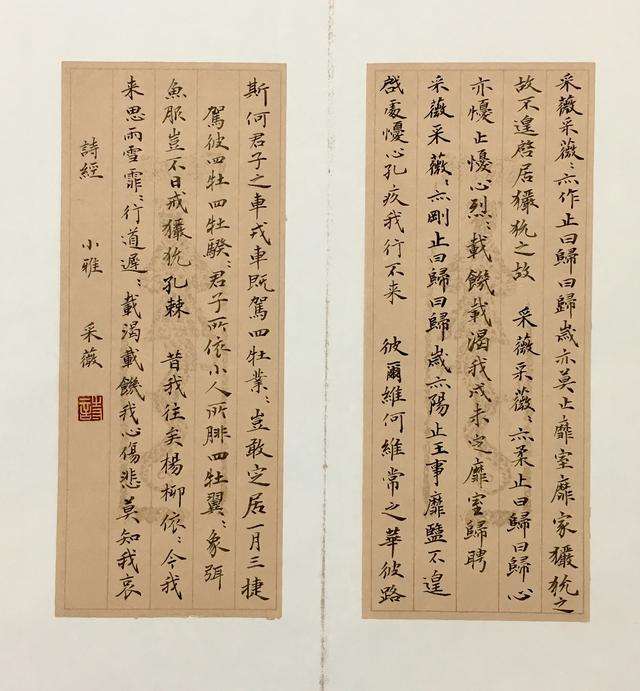 采薇采薇〻亦作止曰歸曰歸歲亦莫止靡室靡家玁狁之
故不遑啓居玁狁之故 采薇采薇〻亦柔止曰歸曰歸心
亦憂止憂心烈〻載饑載渴我戍未定靡室歸聘
采薇采薇〻亦剛止曰歸曰歸歲亦陽止王事靡盬不遑
啓處憂心孔疚我行不来 彼爾維何維常之華彼路
斯何君子之車戎車既駕四牡業〻豈敢定居一月三捷
駕彼四牡四牡騤〻君子所依小人所腓四牡翼〻象弭
魚服豈不日戒玁狁孔棘 昔我往矣楊柳依〻今我
来思雨雪霏〻行道遲〻載渴載饑我心傷悲莫知我哀
詩經 小雅 采薇